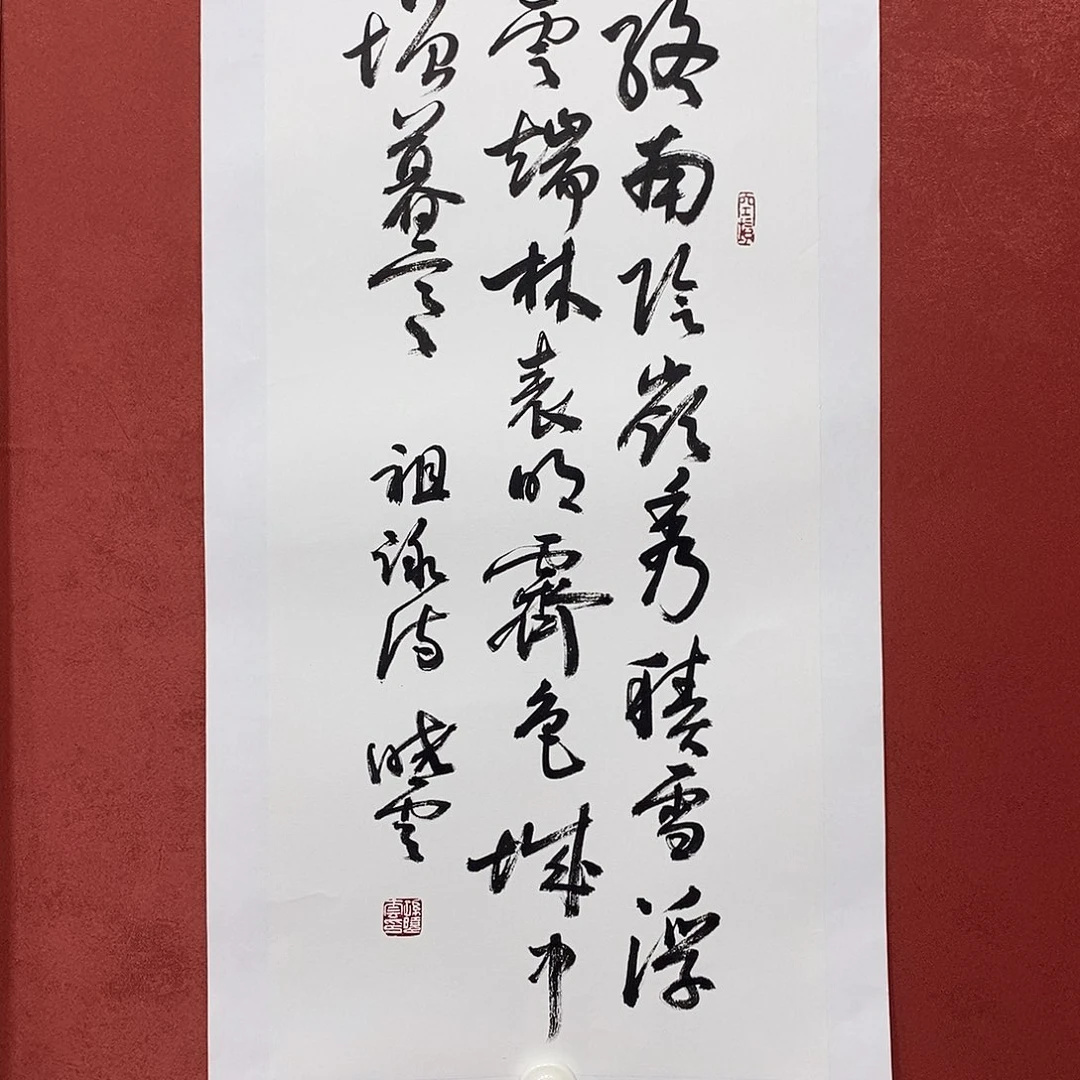 終南陰嶺秀積雪浮
雲端林表明霽色城中
增暮寒
祖詠詩 曉雲